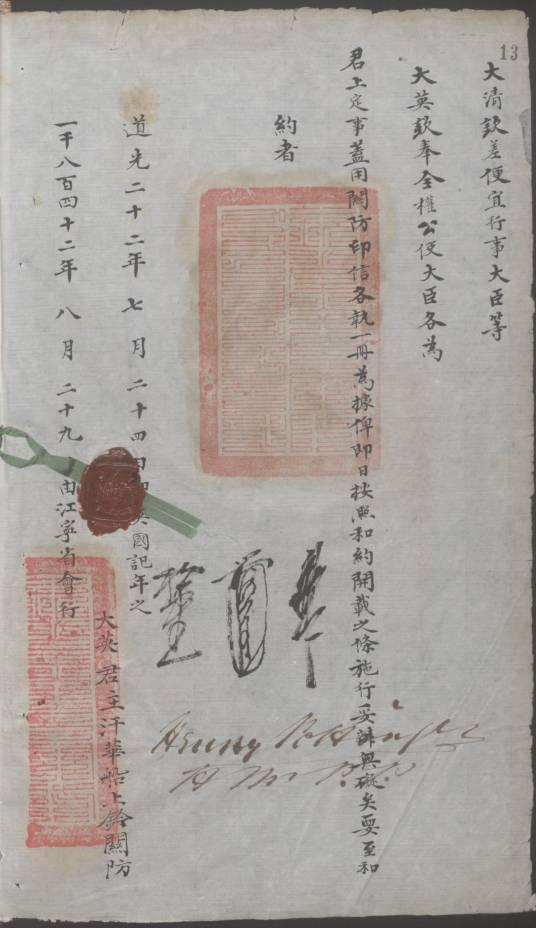 13
大清欽差便宜行事大臣等
大英欽奉全權公使大臣各為
君上定事蓋用關防印信各執一冊為據俾即日按照和約開載之條施行妥辦無礙矣要至和
約者
道光二十二年七月二十四日即英國記年之
一千八百四十二年八月二十九 由江寧省會行
大英君主汗華船上鈐關防
Henry Pottinger